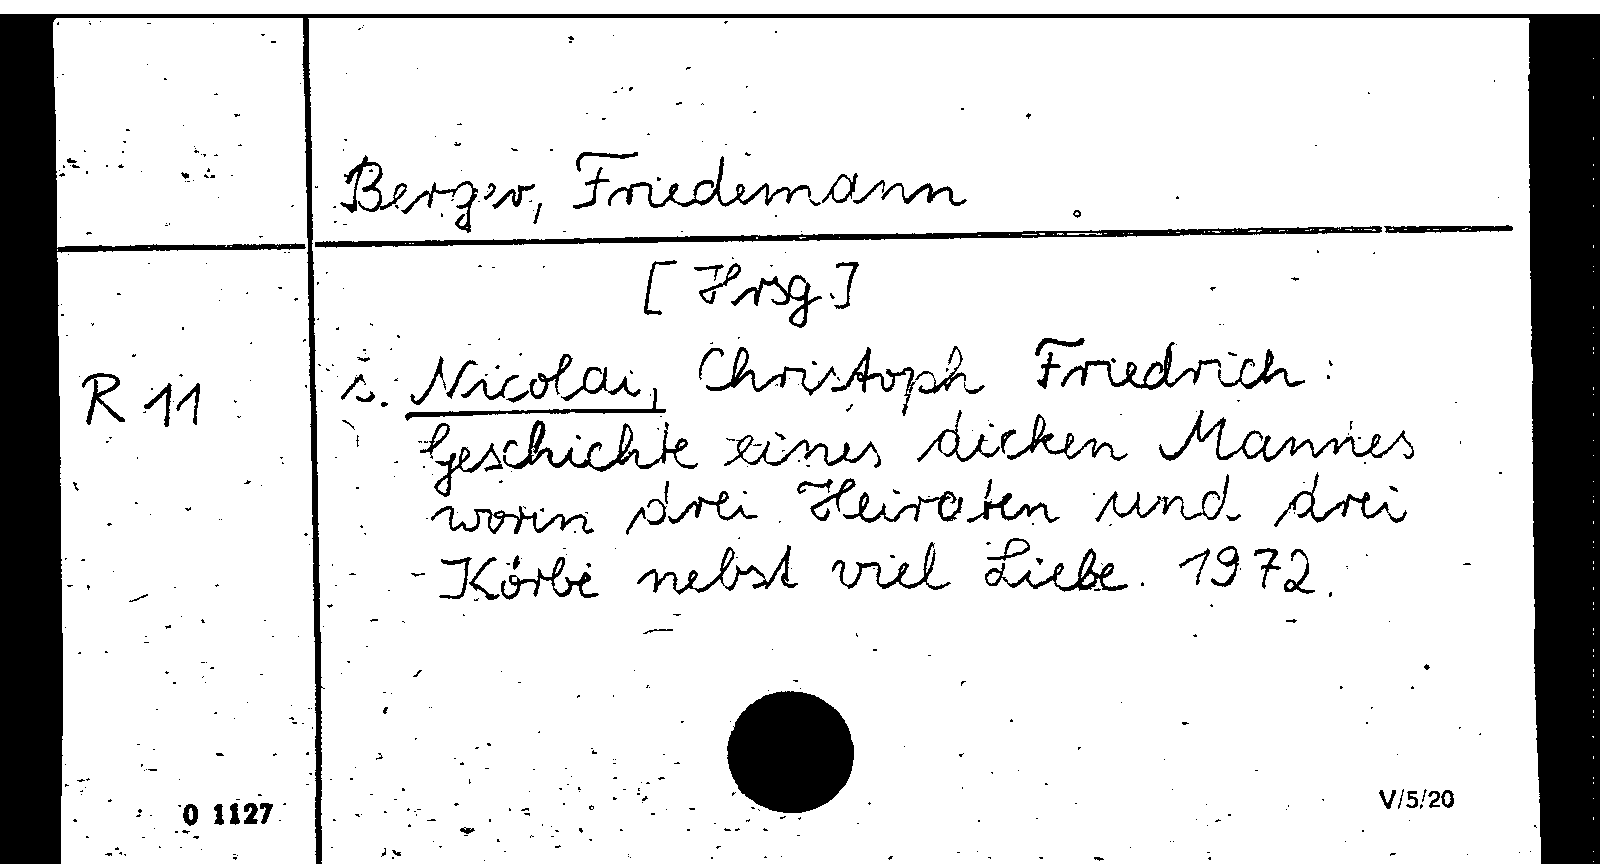 Berger, Friedemann
[Hrsg.]
R 11
s. Nicolai, Christoph Friedrich:
Geschichte eines dicken Mannes
worin drei Heiraten und drei
Körbe nebst viel Liebe. 1972.
0 1127
V/5/20